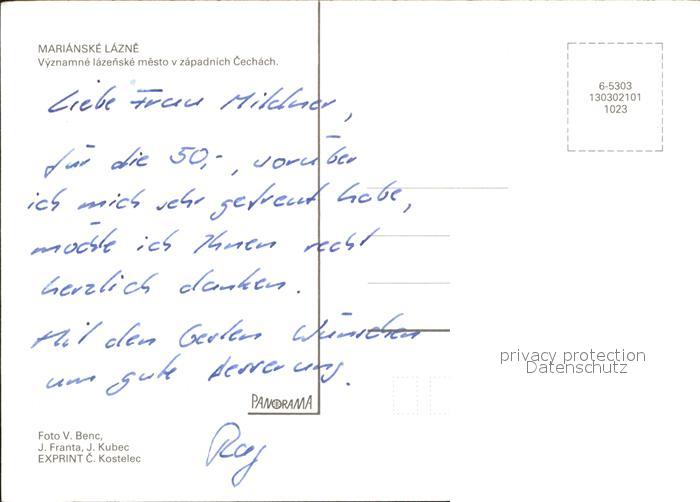 MARIÁNSKÉ LÁZNĚ
Významné lázeňské město v západních Čechách.
6-5303
130302101
1023
Liebe Frau Mildner,
für die 50,-, worüber
ich mich sehr gefreut habe,
möchte ich Ihnen recht
herzlich danken.
Mit den besten Wünschen
um gute Besserung.
PANORAMA
privacy protection
Datenschutz
Foto V. Benc,
J. Franta, J. Kubec
EXPRINT Č. Kostelec